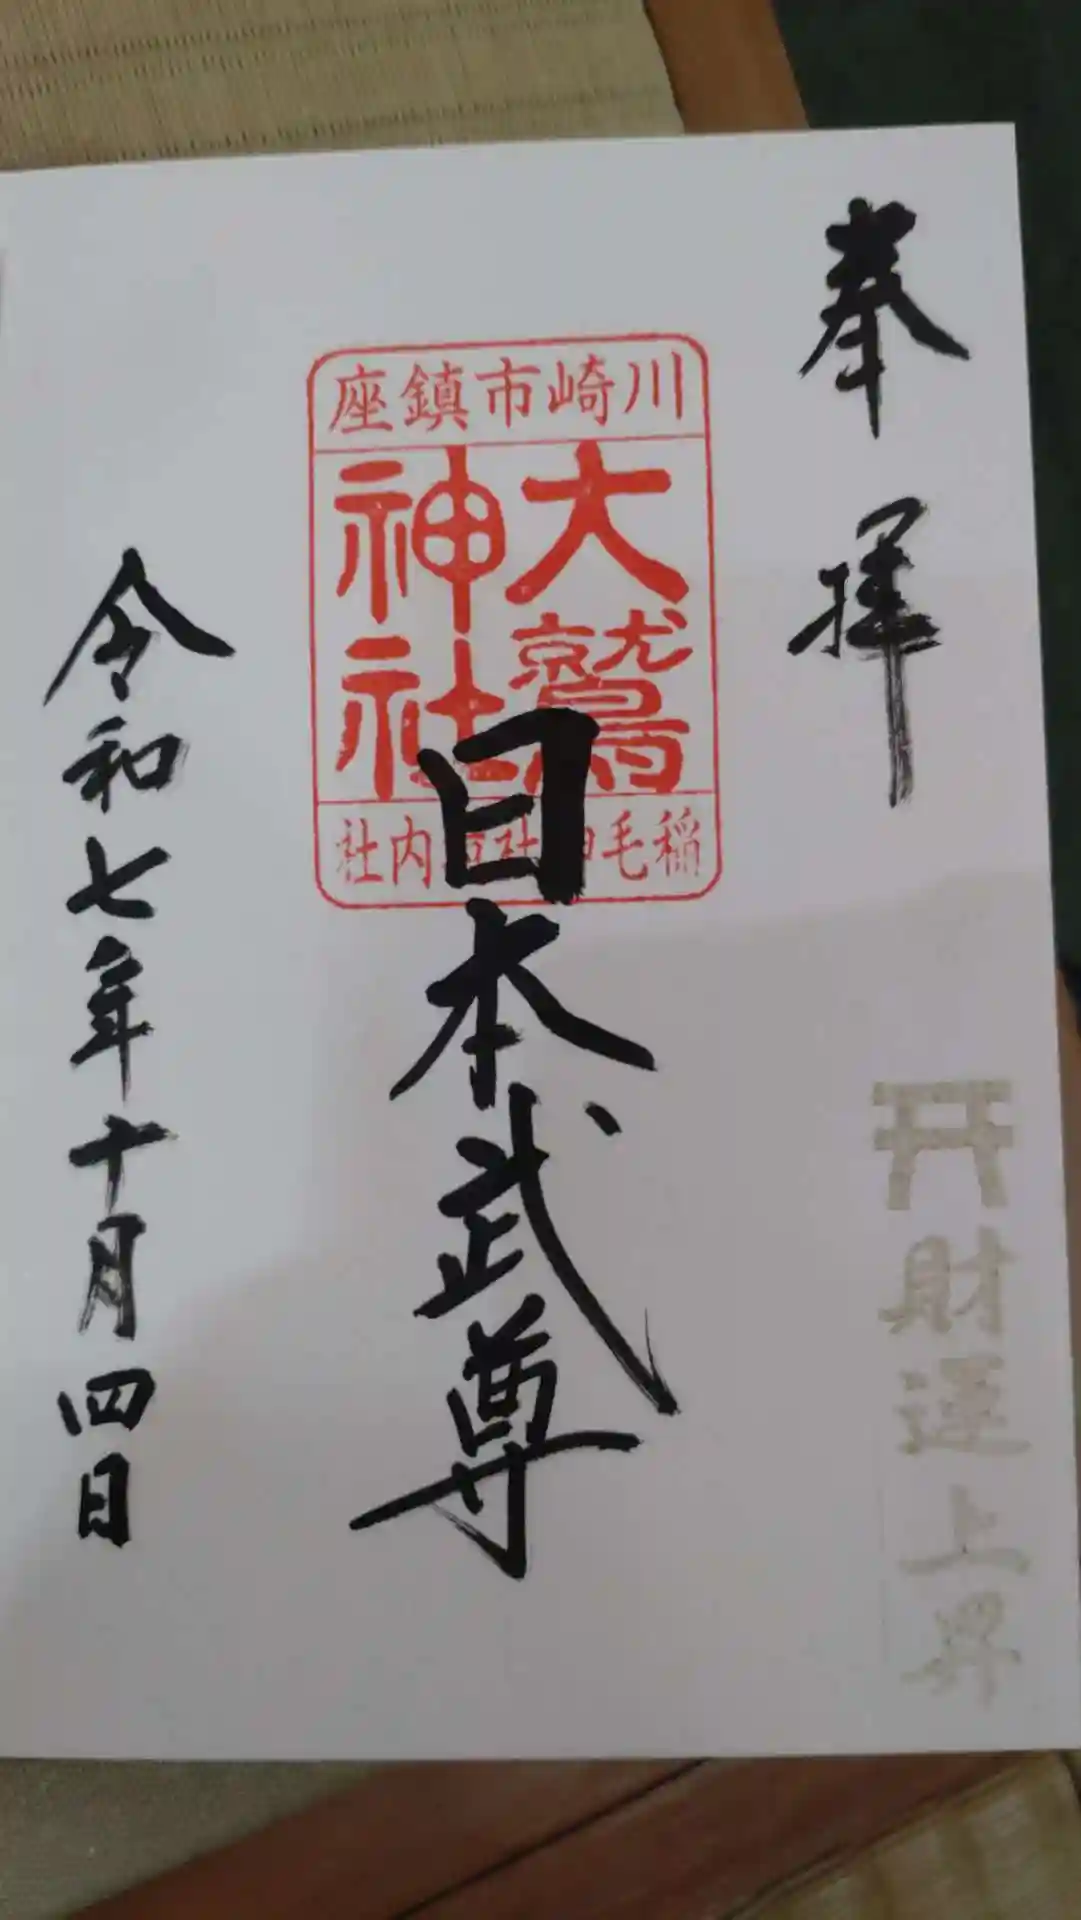 奉拝
財運上昇
川崎市鎮座
大鷲
神社
稲毛神社境内社
日本武尊
令和七年十月四日